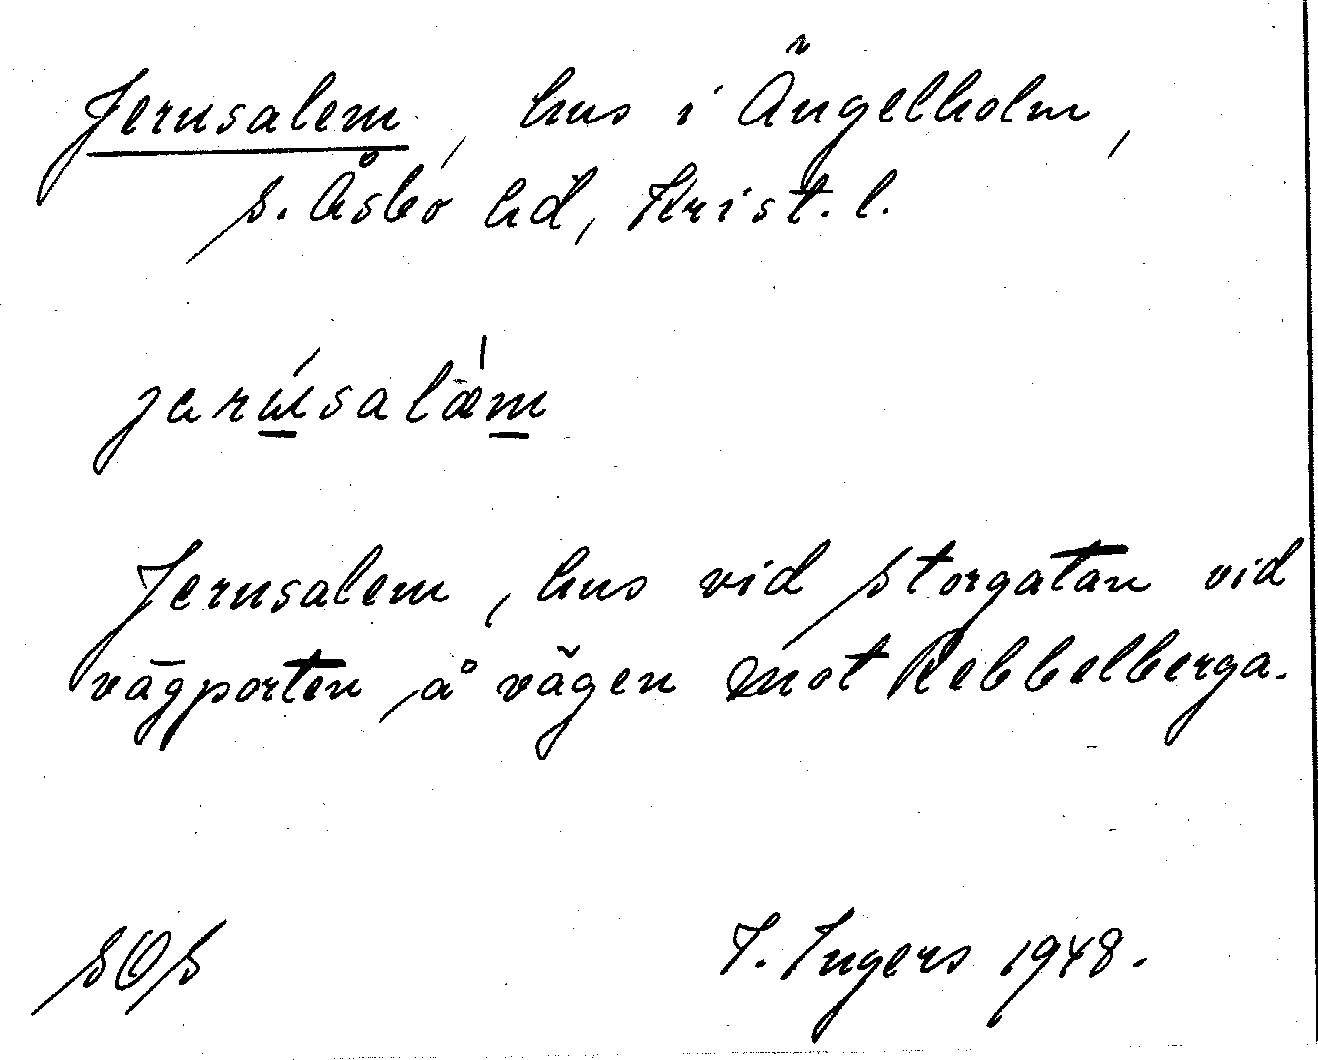 Jerusalem, hus i Ängelholm,
S. Åsbo hd, Krist. l.
jarúsalǽm
Jerusalem, hus vid Storgatan vid
vägporten å vägen mot Rebbelberga.
SOS I. Ingers 1948.